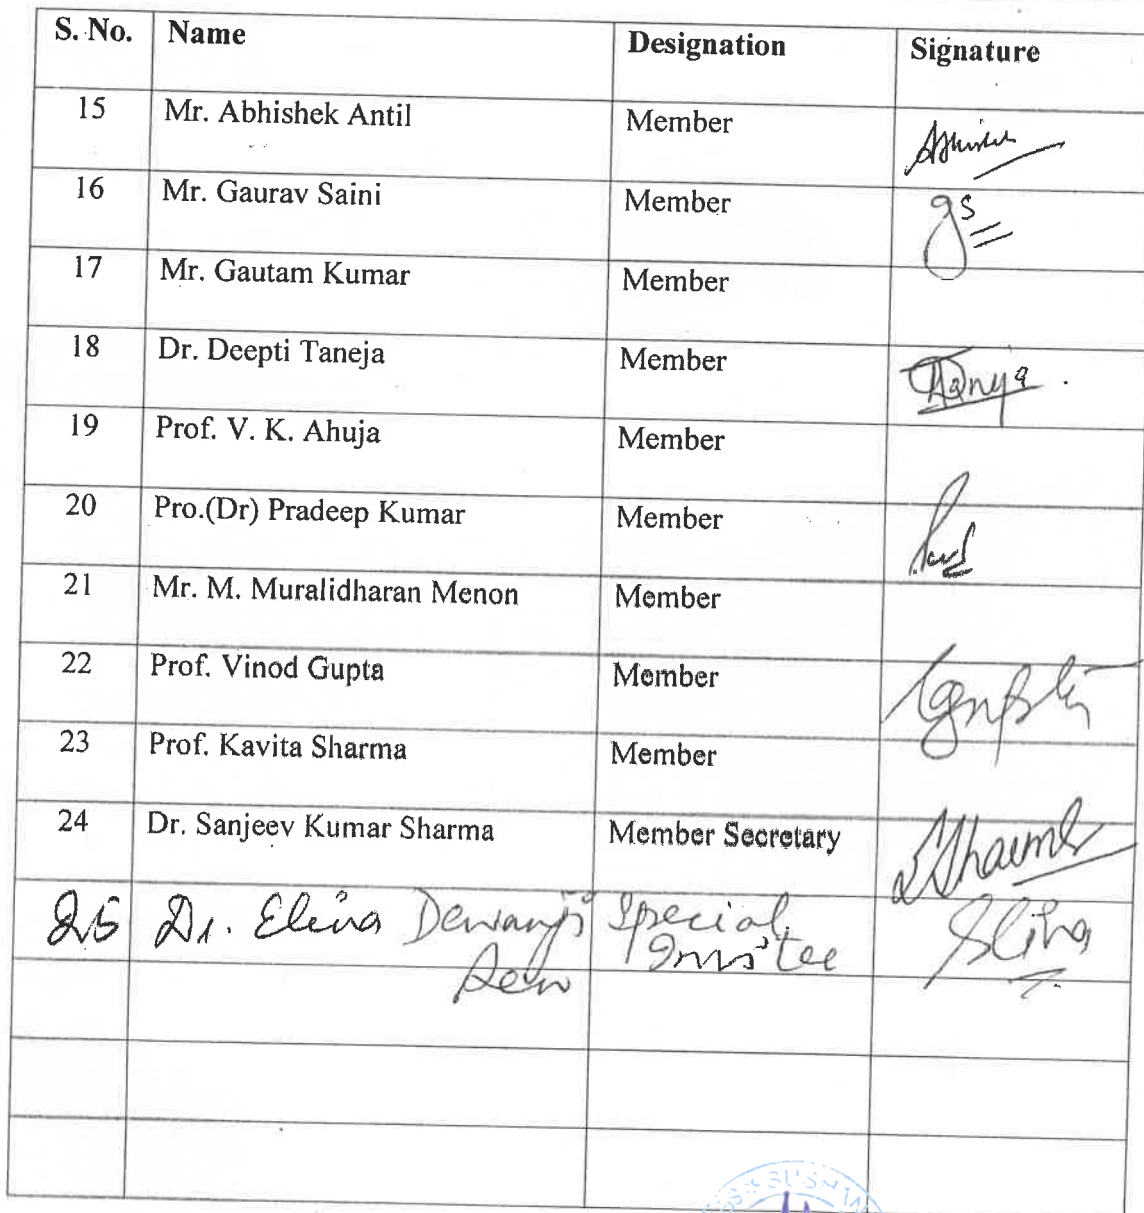 S. No. Name Designation Signature
15 Mr. Abhishek Antil Member Abhishek
16 Mr. Gaurav Saini Member gs
17 Mr. Gautam Kumar Member
18 Dr. Deepti Taneja Member Taneja
19 Prof. V. K. Ahuja Member
20 Pro.(Dr) Pradeep Kumar Member
21 Mr. M. Muralidharan Menon Member
22 Prof. Vinod Gupta Member Gupta
23 Prof. Kavita Sharma Member
24 Dr. Sanjeev Kumar Sharma Member Secretary Sharma
25 Dr. Elina Dewanji Special Elina
Sen Invitee